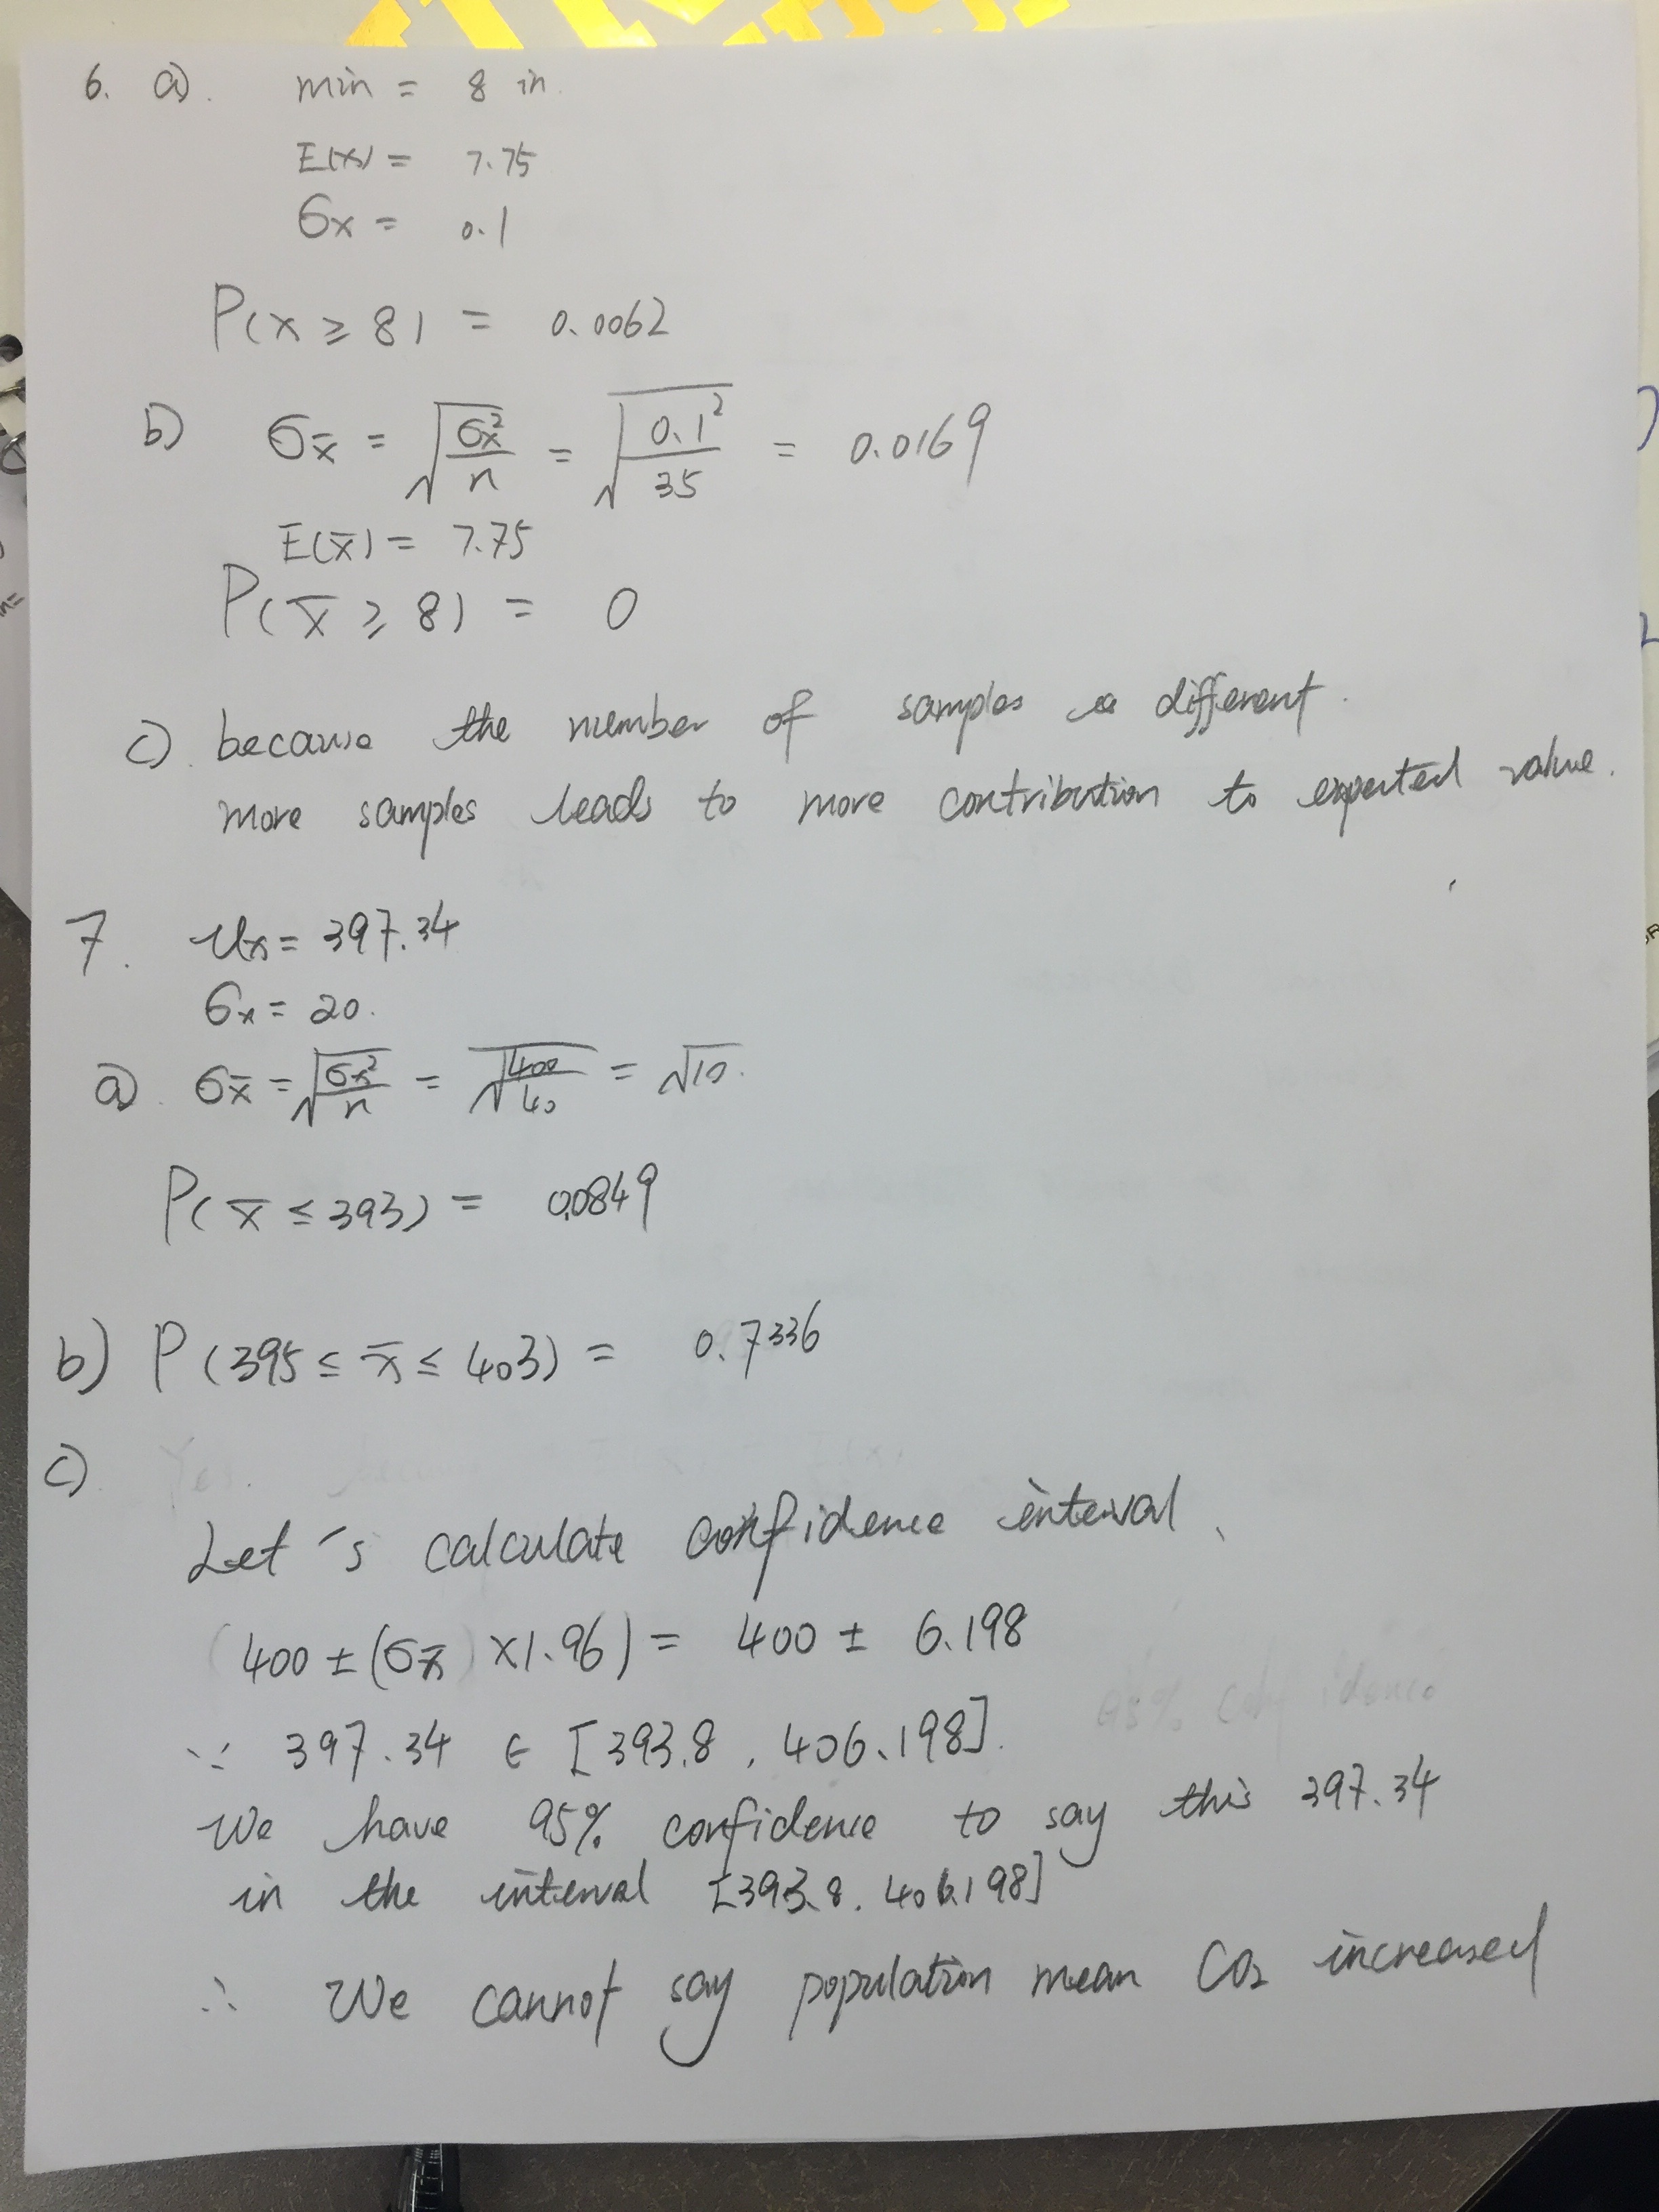 6. a). min = 8 in.
E(x) = 7.75
σx = 0.1
P(x ≥ 8) = 0.0062
b) σx̄ = √(σx²/n) = √(0.1²/35) = 0.0169
E(x̄) = 7.75
P(x̄ ≥ 8) = 0
c). because the number of samples is different.
more samples leads to more contribution to expected value.
7. μx = 397.34
σx = 20.
a). σx̄ = √(σx²/n) = √(400/40) = √10.
P(x̄ ≤ 393) = 0.0849
b) P(395 ≤ x̄ ≤ 403) = 0.7336
c)
Let's calculate confidence interval.
400 ± (σx̄ × 1.96) = 400 ± 6.198
∵ 397.34 ∈ [393.8, 406.198].
We have 95% confidence to say this 397.34
in the interval [393.8, 406.198]
∴ We cannot say population mean CO₂ increased